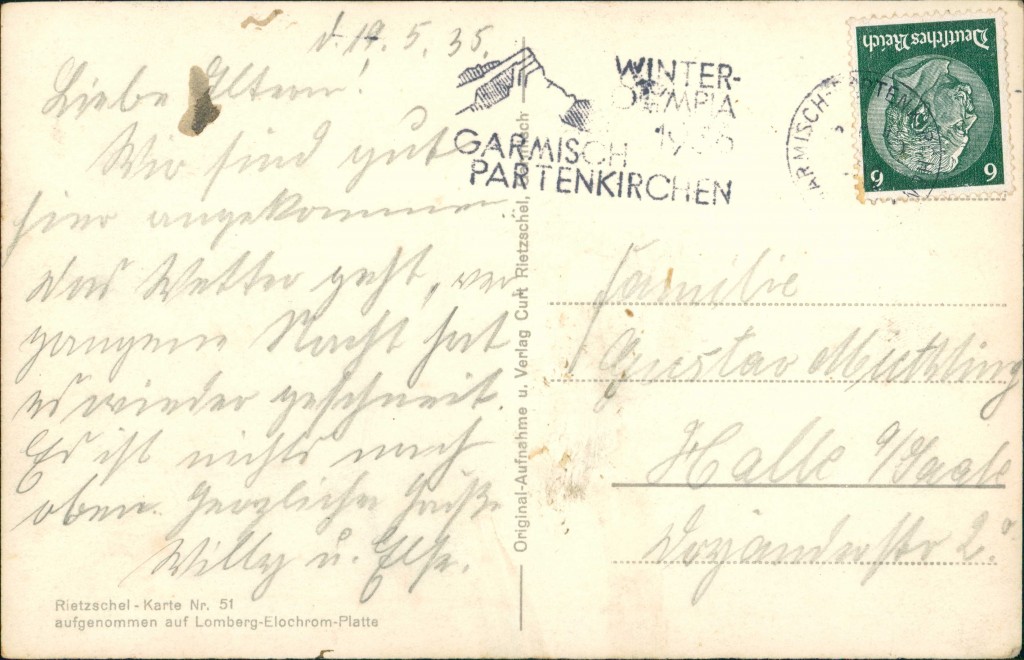 d. 19. 5. 35.
Liebe Eltern!
Wir sind gut
hier angekommen
das Wetter geht, ver
gangene Nacht hat
es wieder geschneit.
Es ist nichts nach
oben. Herzliche Grüße
Willy u. Else.
Rietzschel-Karte Nr. 51
aufgenommen auf Lomberg-Elochrom-Platte
Original-Aufnahme u. Verlag Curt Rietzschel,
WINTER-
OLYMPIA
1936
GARMISCH
PARTENKIRCHEN
Deutsches Reich
6 6
Familie
Gustav
Halle a/Saale
2.